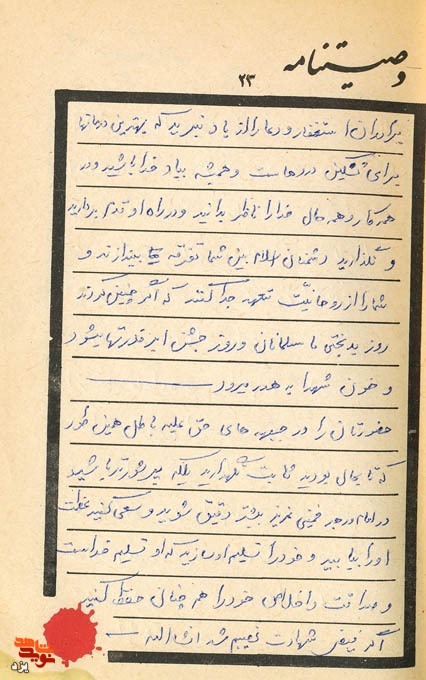 وصیتنامه
۲۳
برادران استغفار و دعا را از یاد نبرید که بهترین درمانها
برای تسکین دردهاست و همیشه بیاد خدا باشید و در
همه کار و همه حال خدا را ناظر بدانید و در راه او قدم بردارید
و نگذارید دشمنان اسلام بین شما تفرقه بیندازند و
شما را از روحانیت متعهد جدا کنند که اگر چنین کردند
روز بدبختی ما مسلمانان و روز جشن ابرقدرتها میشود
و خون شهدا به هدر میرود
حضورتان را در جبهه های حق علیه باطل همین طور
که تا بحال بودید ثابت نگهدارید بلکه پر شورتر باشید
در امام و رهبر خمینی عزیز بیشتر دقیق شوید و سعی کنید عظمت
او را بیابید و خود را تسلیم او سازید که او تسلیم خداست
و صداقت و اخلاص خود را همچنان حفظ کنید
اگر فیض شهادت نصیبم شد انشاالله
نوید شاهد
یزد